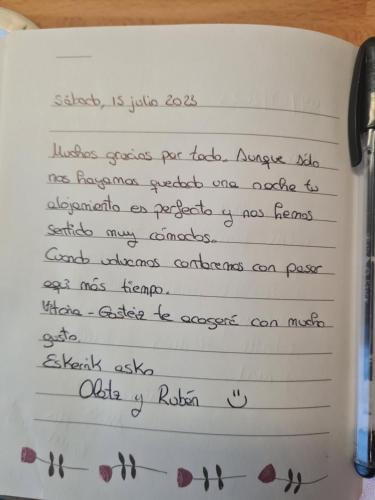 Sábado, 15 julio 2023
Muchas gracias por todo. Aunque sólo
nos hayamos quedado una noche tu
alojamiento es perfecto y nos hemos
sentido muy cómodos.
Cuando volvamos contaremos con pasar
aquí más tiempo.
Vitoria-Gasteiz te acogerá con mucho
gusto.
Eskerrik asko
Olatz y Rubén